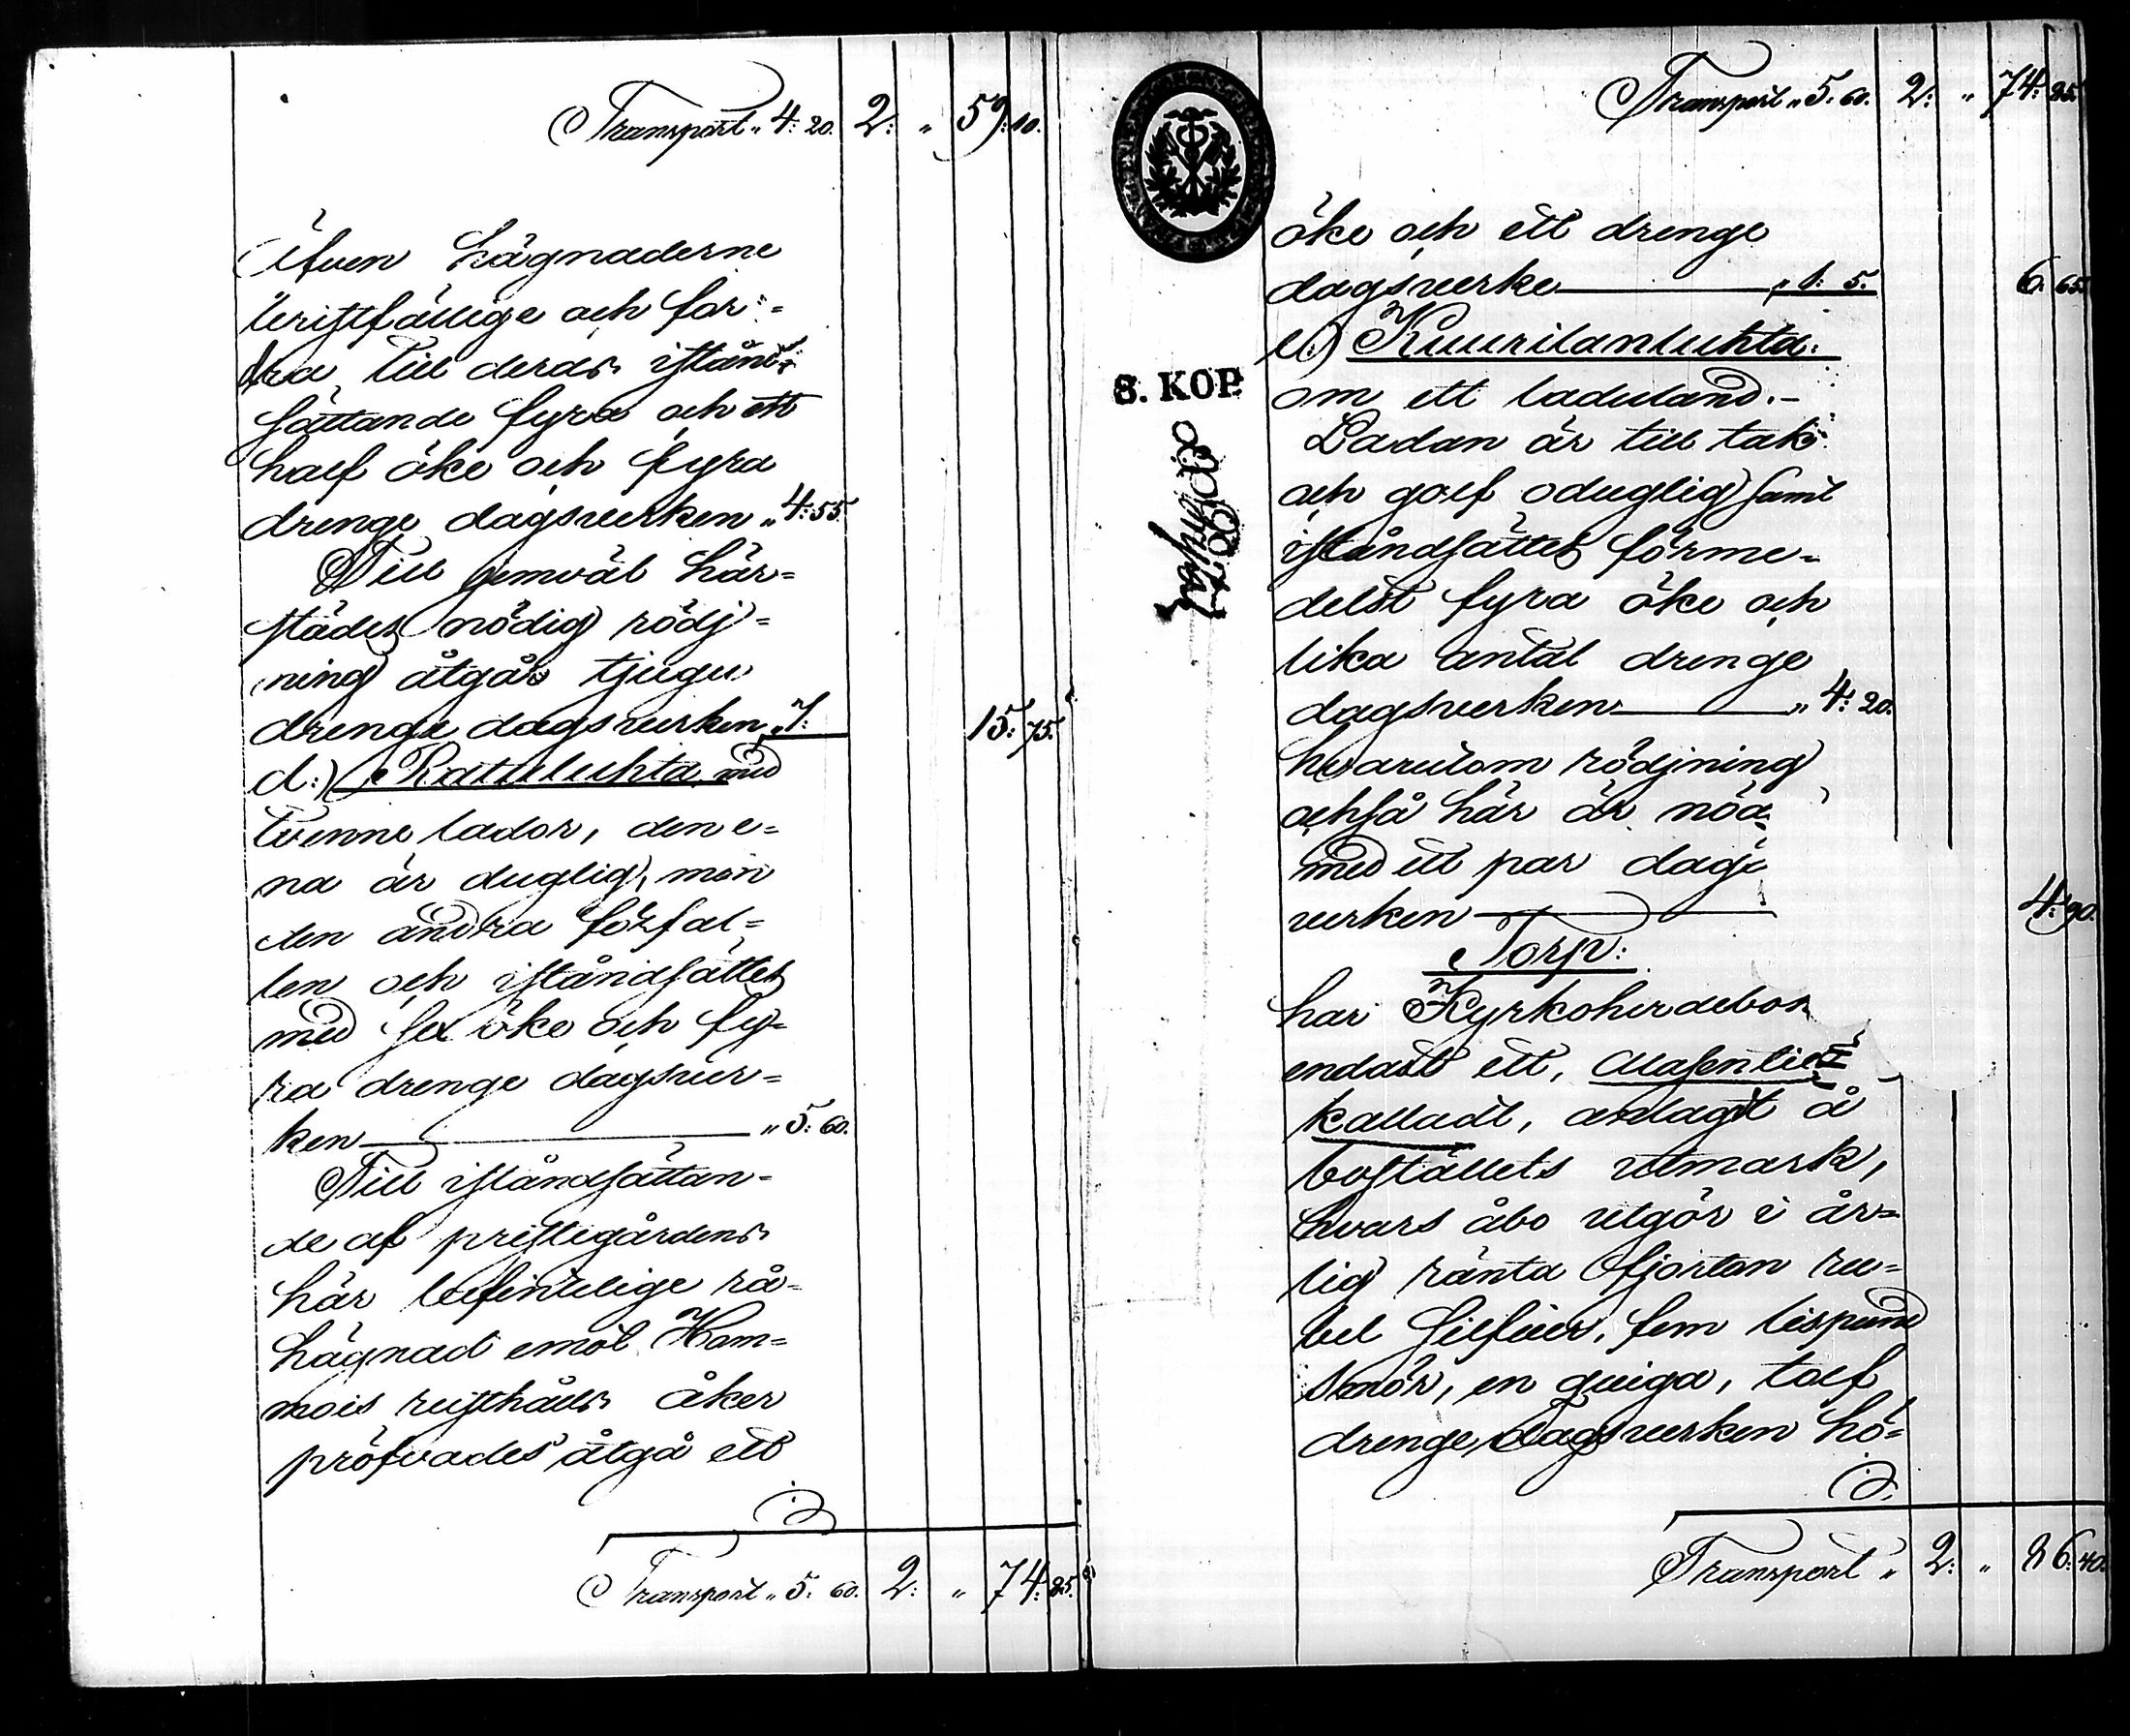 Transport „ 4: 20. 2: „ 59: 10.
Äfven hägnaderne
bristfällige och for-
dra till deras istånd-
sättande fyra och ett
half öke och fyra
drenge dagsverken „ 4: 55.
Till jemväl här-
städes nödig rödj-
ning åtgår tjugu
drenge dagsverken „ 7: 15: 75.
d:) Rattuluhta med
tvenne lador, den e-
na är duglig, men
den andra förfal-
len och iståndsättes
med sex öke och fy-
ra drenge dagsver-
ken „ 5: 60.
Till iståndsättan-
de af prestegårdens
här befintelige rå-
hägnad emot Ham-
mois rusthålls åker
pröfvades åtgå ett
Transport „ 5: 60. 2: „ 74: 85.
Transport „ 5: 60. 2: „ 74: 85.
öke och ett drenge
dagsverke „ 1: 5. 6: 65.
e:) Kuurilanluhta:
om ett laduland.-
Ladan är till tak
och golf oduglig samt
iståndsättes förme-
delst fyra öke och
lika antal drenge
dagsverken „ 4: 20.
hvarutom rödjning
också här är nöd.
med ett par dags
verken 4: 90.
Torp:
har Kyrkoherdebos
endast ett,
kalladt, anlagdt å
boställets utmark,
hvars åbo utgör i år-
lig ränta fjorton ru-
bel silfver, fem lispund
smör, en quiga, tolf
drenge dagsverken hö-
Transport „ 2: „ 86: 40.
8. KOP.